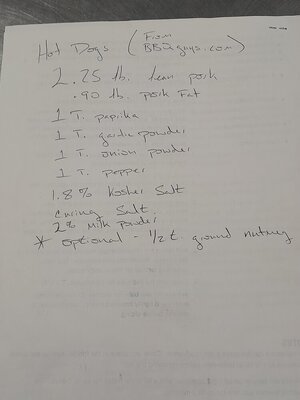 Hot Dogs (From
BBQguys.com)
2.25 lb. lean pork
.90 lb. pork Fat
1 T. paprika
1 T. garlic powder
1 T. onion powder
1 T. pepper
1.8% Kosher Salt
Curing Salt.
2% Milk Powder
* optional - 1/2 t. ground nutmeg